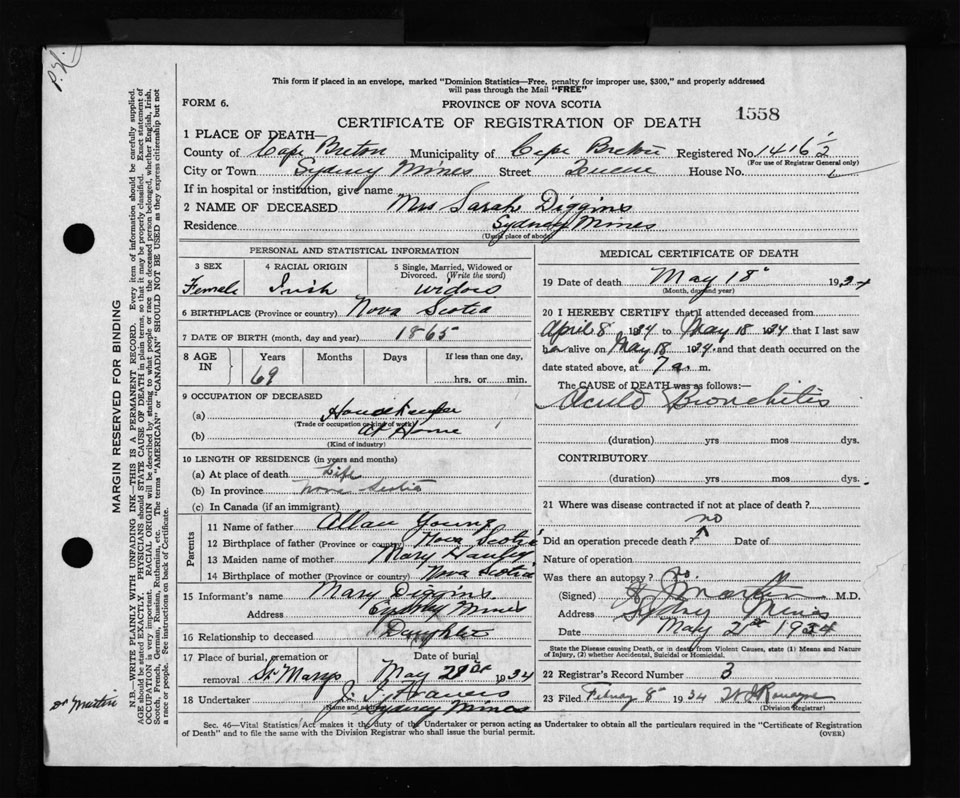 This form if placed in an envelope, marked "Dominion Statistics—Free, penalty for improper use, $300," and properly addressed
will pass through the Mail "FREE"
FORM 6.
PROVINCE OF NOVA SCOTIA
CERTIFICATE OF REGISTRATION OF DEATH
1558
1 PLACE OF DEATH—
County of Cape Breton Municipality of Cape Breton Registered No. 1416½
(For use of Registrar General only)
City or Town Sydney Mines Street Queen House No.
If in hospital or institution, give name
2 NAME OF DECEASED Mrs Sarah Diggins
Residence Sydney Mines
(Usual place of abode)
PERSONAL AND STATISTICAL INFORMATION
3 SEX Female
4 RACIAL ORIGIN Irish
5 Single, Married, Widowed or Divorced. (Write the word) widow
6 BIRTHPLACE (Province or country) Nova Scotia
7 DATE OF BIRTH (month, day and year) 1865
8 AGE IN Years 69 Months Days If less than one day, hrs. or min.
9 OCCUPATION OF DECEASED
(a) Housekeeper
(Trade or occupation or kind of work)
(b) At Home
(Kind of industry)
10 LENGTH OF RESIDENCE (in years and months)
(a) At place of death Life
(b) In province Nova Scotia
(c) In Canada (if an immigrant)
Parents
11 Name of father Allan Young
12 Birthplace of father (Province or country) Nova Scotia
13 Maiden name of mother Mary
14 Birthplace of mother (Province or country) Nova Scotia
15 Informant's name Mary Diggins
Address Sydney Mines
16 Relationship to deceased Daughter
17 Place of burial, cremation or removal St Marys
Date of burial May 1934
18 Undertaker
(Name and address) Sydney Mines
MEDICAL CERTIFICATE OF DEATH
19 Date of death May 18 1934
(Month, day and year)
20 I HEREBY CERTIFY that I attended deceased from
April 8 1934 to May 18 1934 that I last saw
her alive on May 18 1934 and that death occurred on the
date stated above, at 7 a. m.
The CAUSE OF DEATH was as follows:—
Acute Bronchitis
(duration) yrs mos dys.
CONTRIBUTORY
(duration) yrs mos dys.
21 Where was disease contracted if not at place of death?
no
Did an operation precede death? Date of
Nature of operation
Was there an autopsy? no
(Signed) Martin M.D.
Address Sydney Mines
Date May 21st 1934
State the Disease causing Death, or in death from Violent Causes, state (1) Means and Nature
of Injury, (2) whether Accidental, Suicidal or Homicidal.
22 Registrar's Record Number 3
23 Filed 8 1934
(Division Registrar)
Sec. 46—Vital Statistics Act makes it the duty of the Undertaker or person acting as Undertaker to obtain all the particulars required in the "Certificate of Registration
of Death" and to file the same with the Division Registrar who shall issue the burial permit.
(OVER)
MARGIN RESERVED FOR BINDING
N.B.—WRITE PLAINLY WITH UNFADING INK—THIS IS A PERMANENT RECORD. Every item of information should be carefully supplied.
AGE should be stated EXACTLY. PHYSICIANS should STATE CAUSE OF DEATH in plain terms, so that it may be properly classified. Exact statement of
OCCUPATION is very important. RACIAL ORIGIN will be described by stating to what people or race the deceased person belonged, whether English, Irish,
Scotch, French, German, Russian, Ruthenian, etc. The terms "AMERICAN" or "CANADIAN" SHOULD NOT BE USED as they express citizenship but not
a race or people. See instructions on back of Certificate.
Dr Martin